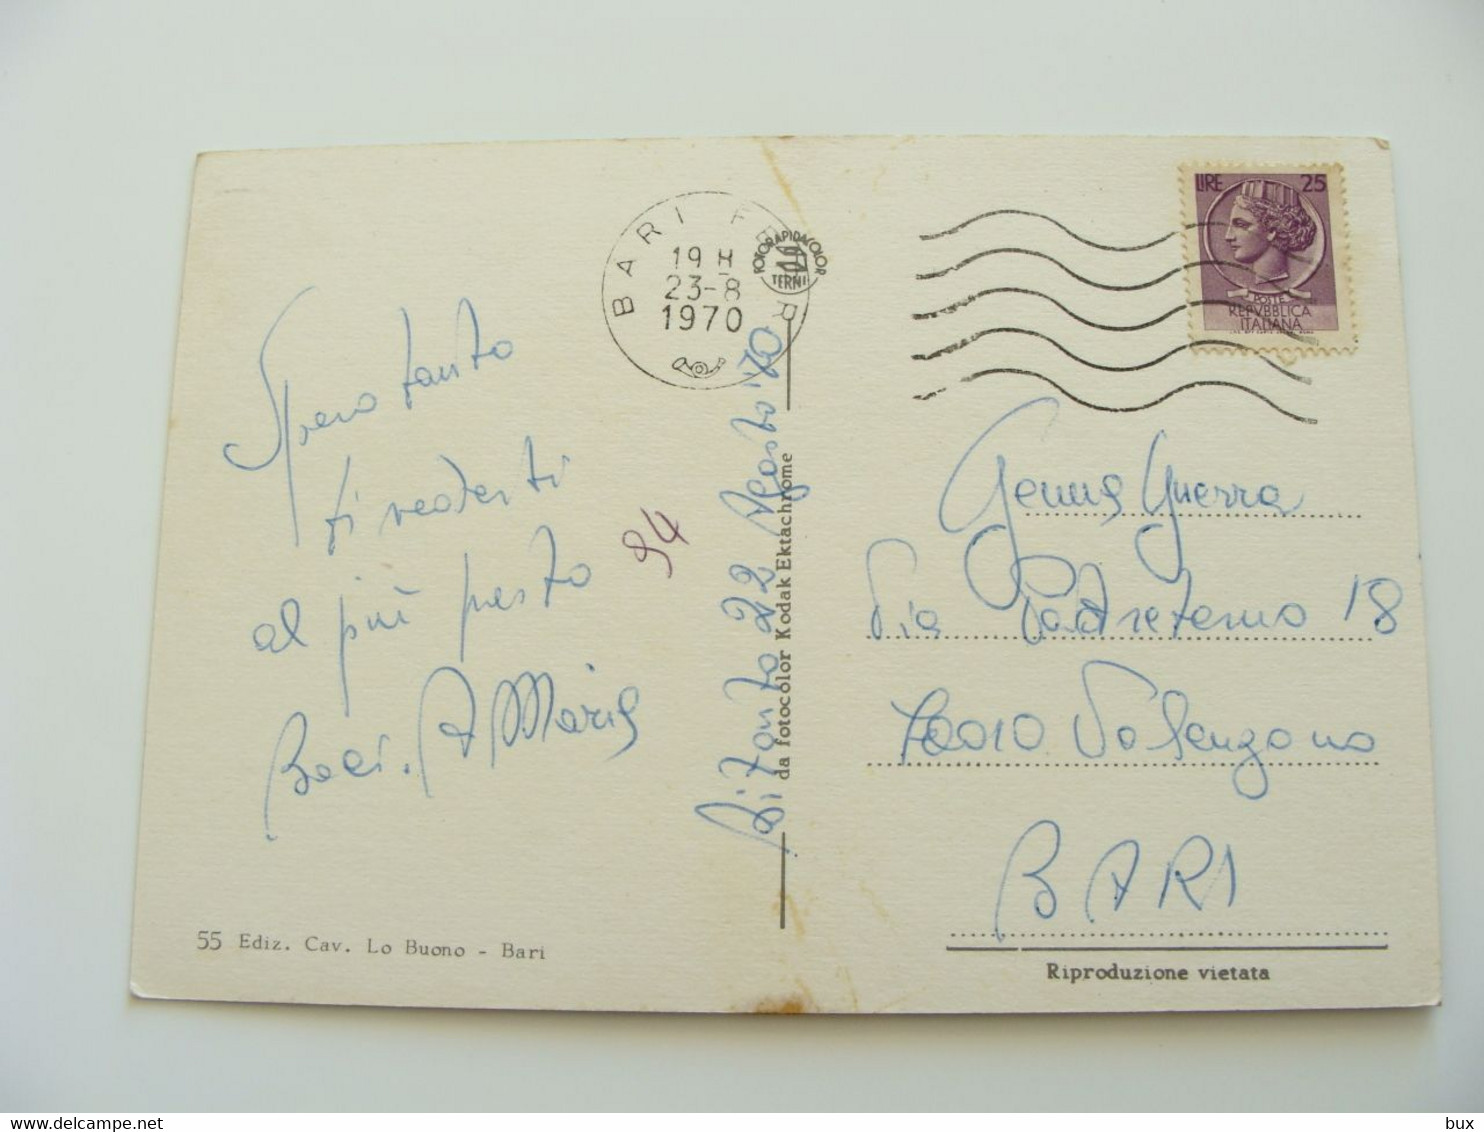 Spero tanto
ti vederti
al più presto
Baci. A Maria
94
55 Ediz. Cav. Lo Buono - Bari
BARI FERR
19 H
23-8
1970
FOTORAPIDACOLOR
TERNI
Bitonto 22 Agosto '70
da fotocolor Kodak Ektachrome
LIRE 25
POSTE
REPVBBLICA
ITALIANA
Gemma Guerra
Via Padreterno 18
70010 Valenzano
BARI
Riproduzione vietata
bux bux